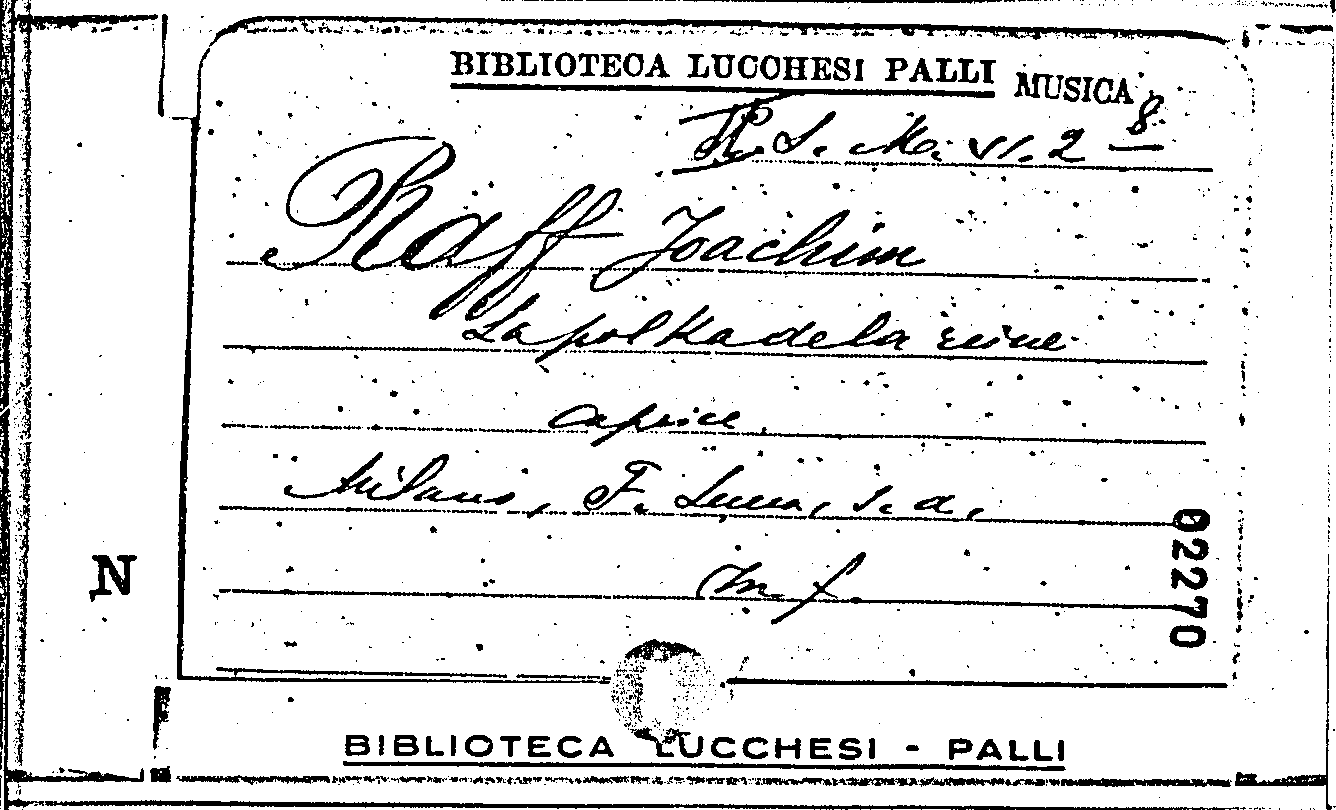 BIBLIOTECA LUCCHESI PALLI MUSICA
S. M. VI. 2 8
Raff Joachim
La polka de la reine
caprice.
Milano, F. Lucca, s. a.
in f.
02270
N
BIBLIOTECA LUCCHESI - PALLI